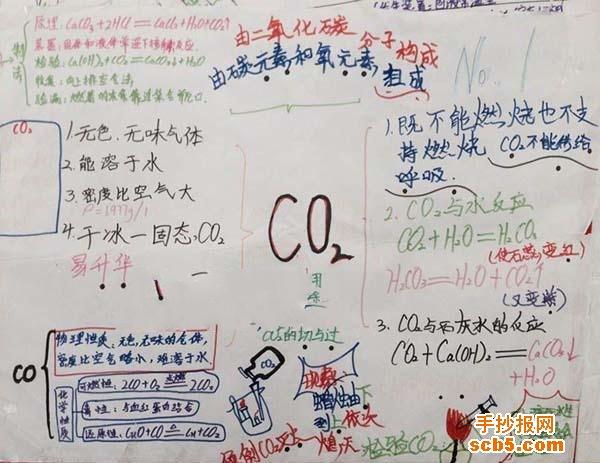 原理: CaCO₃+2HCl=CaCl₂+H₂O+CO₂↑
装置:固体和液体常温下接触反应.
检验: Ca(OH)₂+CO₂=CaCO₃↓+H₂O
收集:向上排空气法
验满:燃着的木条靠近集气瓶口.
制法
由二氧化碳分子构成
由碳元素和氧元素组成
No.1
CO₂
1.无色、无味气体
2.能溶于水
3.密度比空气大
ρ=1.977g/l
4.干冰一固态CO₂
易升华
CO₂
用途
1.既不能燃烧也不支
持燃烧 CO₂不能供给
呼吸.
2.CO₂与水反应
CO₂+H₂O=H₂CO₃
(使石蕊变红)
H₂CO₃=H₂O+CO₂↑
(又变紫)
3.CO₂与石灰水的反应
CO₂+Ca(OH)₂=CaCO₃↓
+H₂O
CO
物理性质:无色,无味的气体,
密度比空气略小,难溶于水.
化学性质
可燃性: 2CO+O₂ 点燃 2CO₂
毒性:与血红蛋白结合
还原性: CuO+CO △ Cu+CO₂
CO₂的功与过
CO₂
现象
蜡烛由下
到上依次
熄灭
倾倒CO₂
检验CO₂
手抄报网
scb5.com